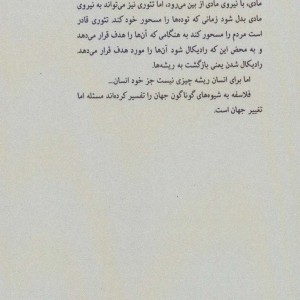 مادی، با نیروی مادی از بین می‌رود، اما تئوری نیز می‌تواند به نیروی
مادی بدل شود زمانی که توده‌ها را مسحور خود کند تئوری قادر
است مردم را مسحور کند به هنگامی که آن‌ها را هدف قرار می‌دهد
و به محض این که رادیکال شود آن‌ها را مورد هدف قرار می‌دهد.
رادیکال شدن یعنی بازگشت به ریشه‌ها.
اما برای انسان ریشه چیزی نیست جز خود انسان...
فلاسفه به شیوه‌های گوناگون جهان را تفسیر کرده‌اند مسئله اما
تغییر جهان است.